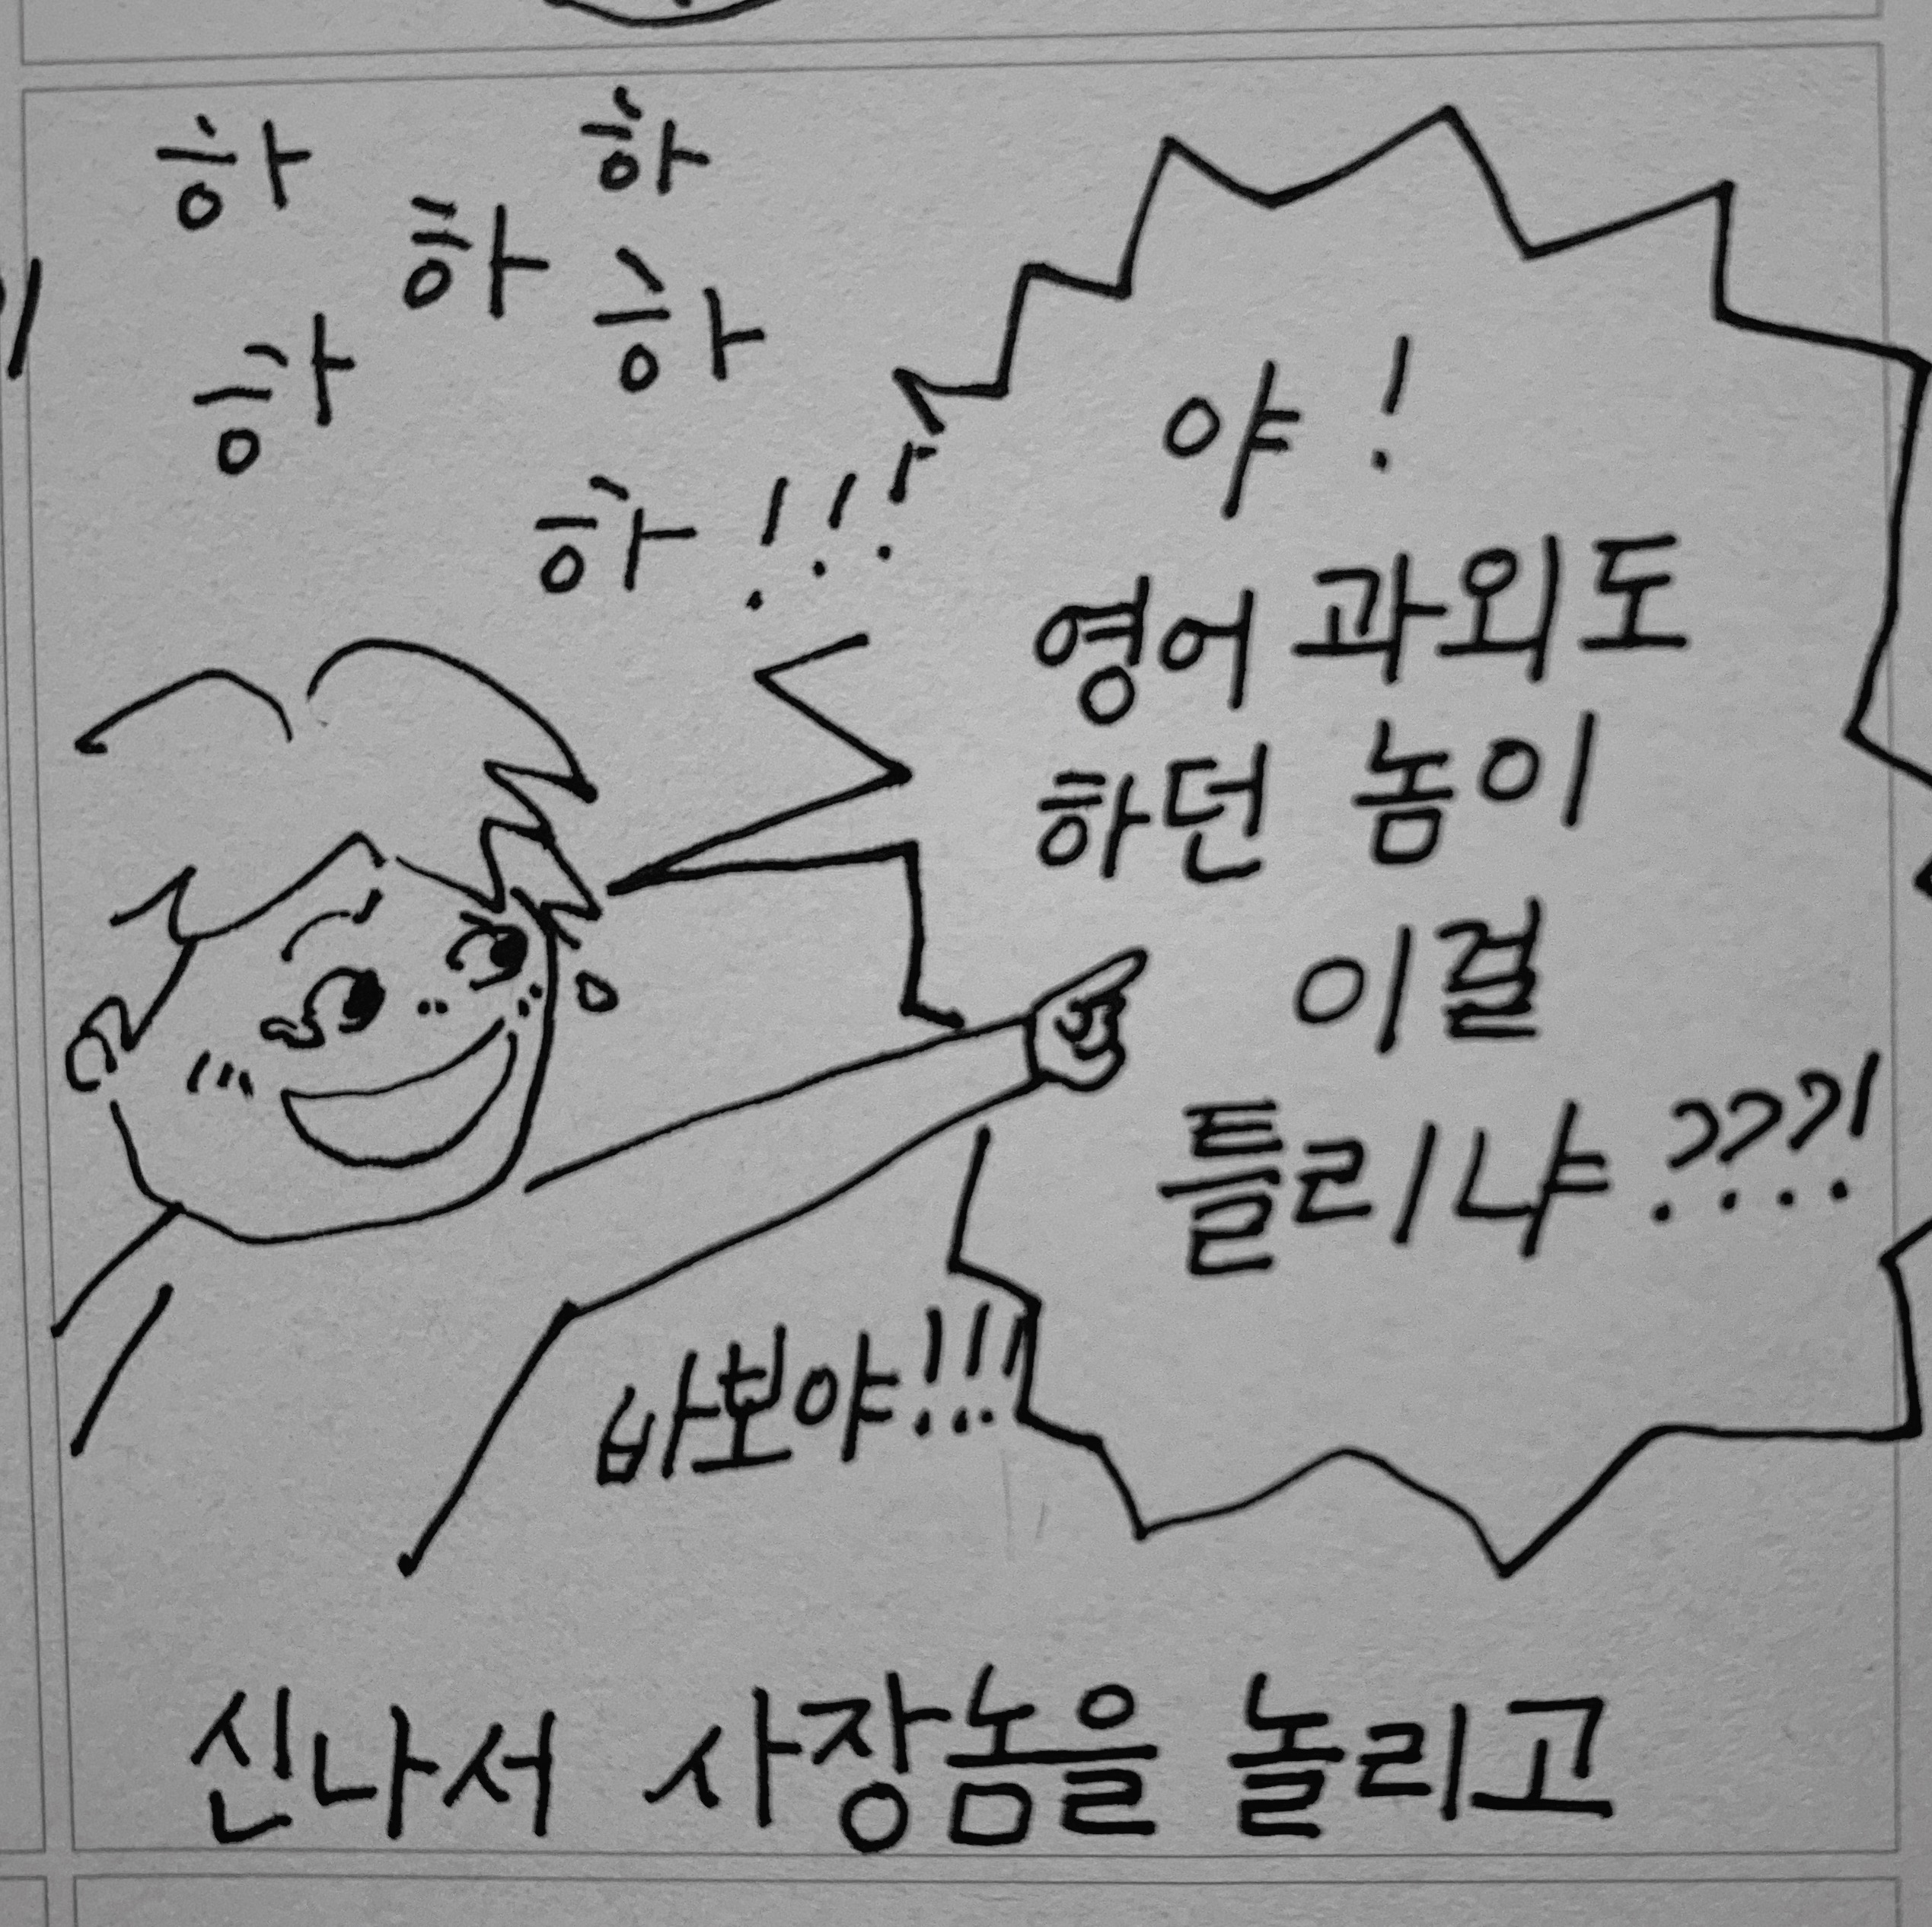 하 하
하
하 하
하!!!
야!
영어 과외도
하던 놈이
이걸
틀리냐???!
바보야!!!
신나서 사장놈을 놀리고